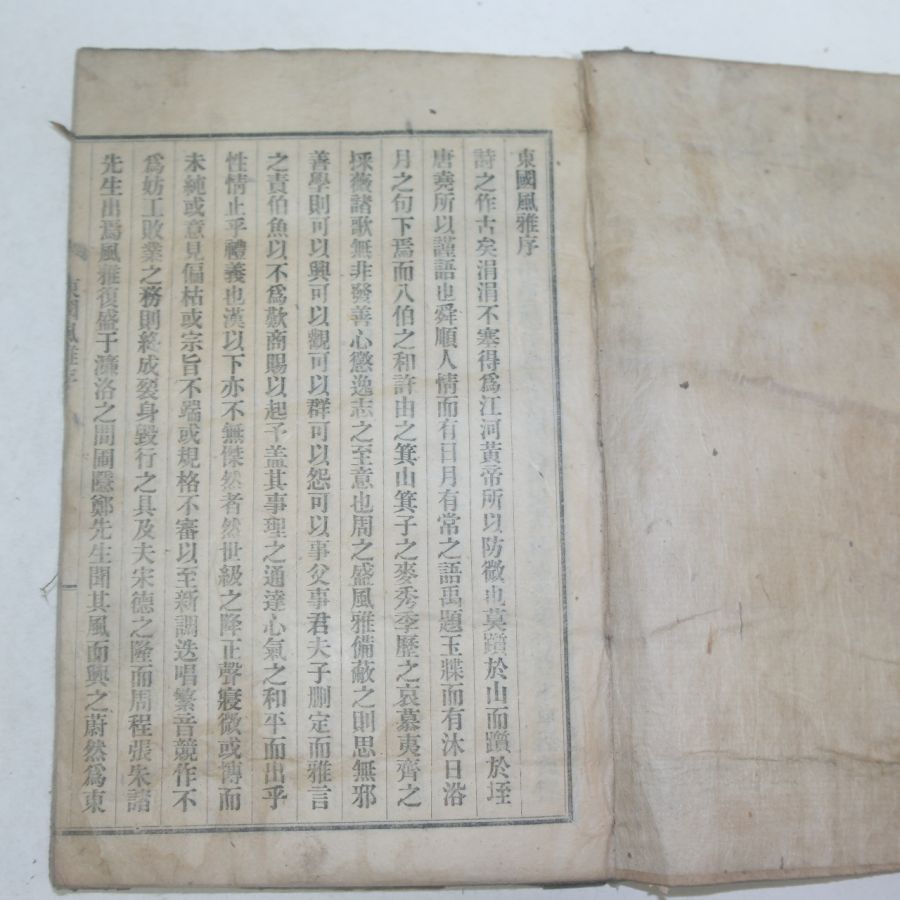 東國風雅序
詩之作古矣涓涓不塞得爲江河黃帝所以防微也莫躓於山而躓於垤
唐堯所以謹語也舜順人情而有日月有常之語禹題玉牒而有沐日浴
月之句下焉而八伯之和許由之箕山箕子之麥秀季歷之哀慕夷齊之
採薇諸歌無非發善心懲逸志之至意也周之盛風雅備蔽之則思無邪
善學則可以興可以觀可以群可以怨可以事父事君夫子刪定而雅言
之責伯魚以不爲歎商賜以起予盖其事理之通達心氣之和平而出乎
性情止乎禮義也漢以下亦不無傑然者然世級之降正聲寢微或慱而
未純或意見偏枯或宗旨不端或規格不審以至新調迭唱繁音競作不
爲妨工敗業之務則終成裂身毀行之具及夫宋德之隆而周程張朱諸
先生出焉風雅復盛于濂洛之間圃隱鄭先生聞其風而興之蔚然爲東
東國風雅序